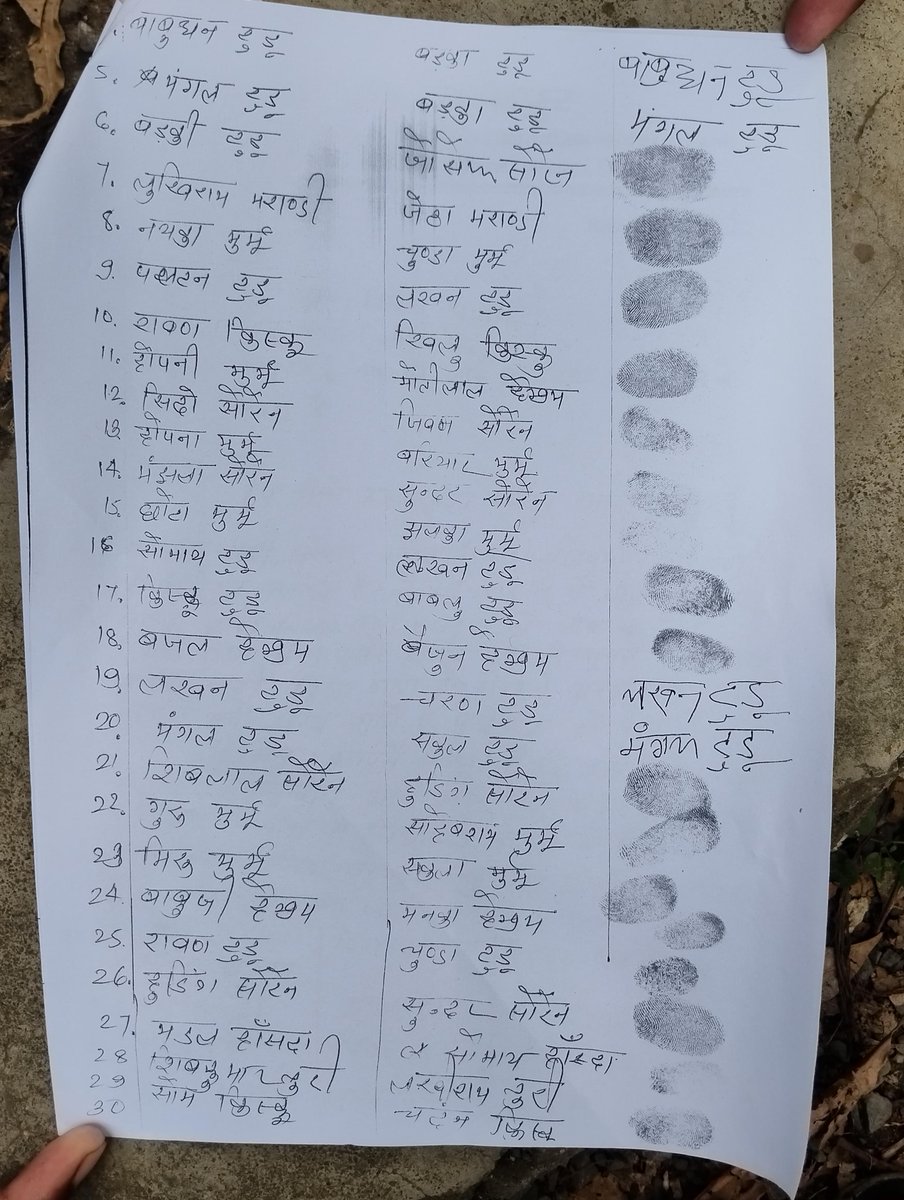 बाबुधन टुडू बड़का टुडू बाबुधन टुडू
5. मंगल टुडू बड़का टुडू मंगल टुडू
6. बड़की टुडू जोसेफ सोरेन
7. लुखिराम मराण्डी जेठा मराण्डी
8. नयका मुर्मू चुण्डा मुर्मू
9. टुडू लखन टुडू
10. रावण किस्कू खिलु किस्कु
11. होपनी मुर्मू मोतीलाल हेम्ब्रम
12. सिदो सोरेन जिवन सोरेन
13. होपना मुर्मू बरियार मुर्मू
14. मंझला सोरेन सुन्दर सोरेन
15. छोटा मुर्मू मुर्मू
16 सोमाय टुडू लखन टुडू
17. किस्कू टुडू बाबलु टुडू
18. बजल हेम्ब्रम बैजुन हेम्ब्रम
19. लखन टुडू चरण टुडू लखन टुडू
20. मंगल टुडू सकल टुडू मंगल टुडू
21. शिबलाल सोरेन हुडिंग सोरेन
22. गुरु मुर्मू सोहबराय मुर्मू
23 मिरु मुर्मू सकला मुर्मू
24. बाबुजी हेम्ब्रम मनका हेम्ब्रम
25. रावण टुडू चुण्डा टुडू
26. हुडिंग सोरेन सुन्दर सोरेन
27. मडल हाँसदा सोमाय हाँसदा
28 शिबकुमार तुरी लखीराम तुरी
29 सोम किस्कू किस्कू
30